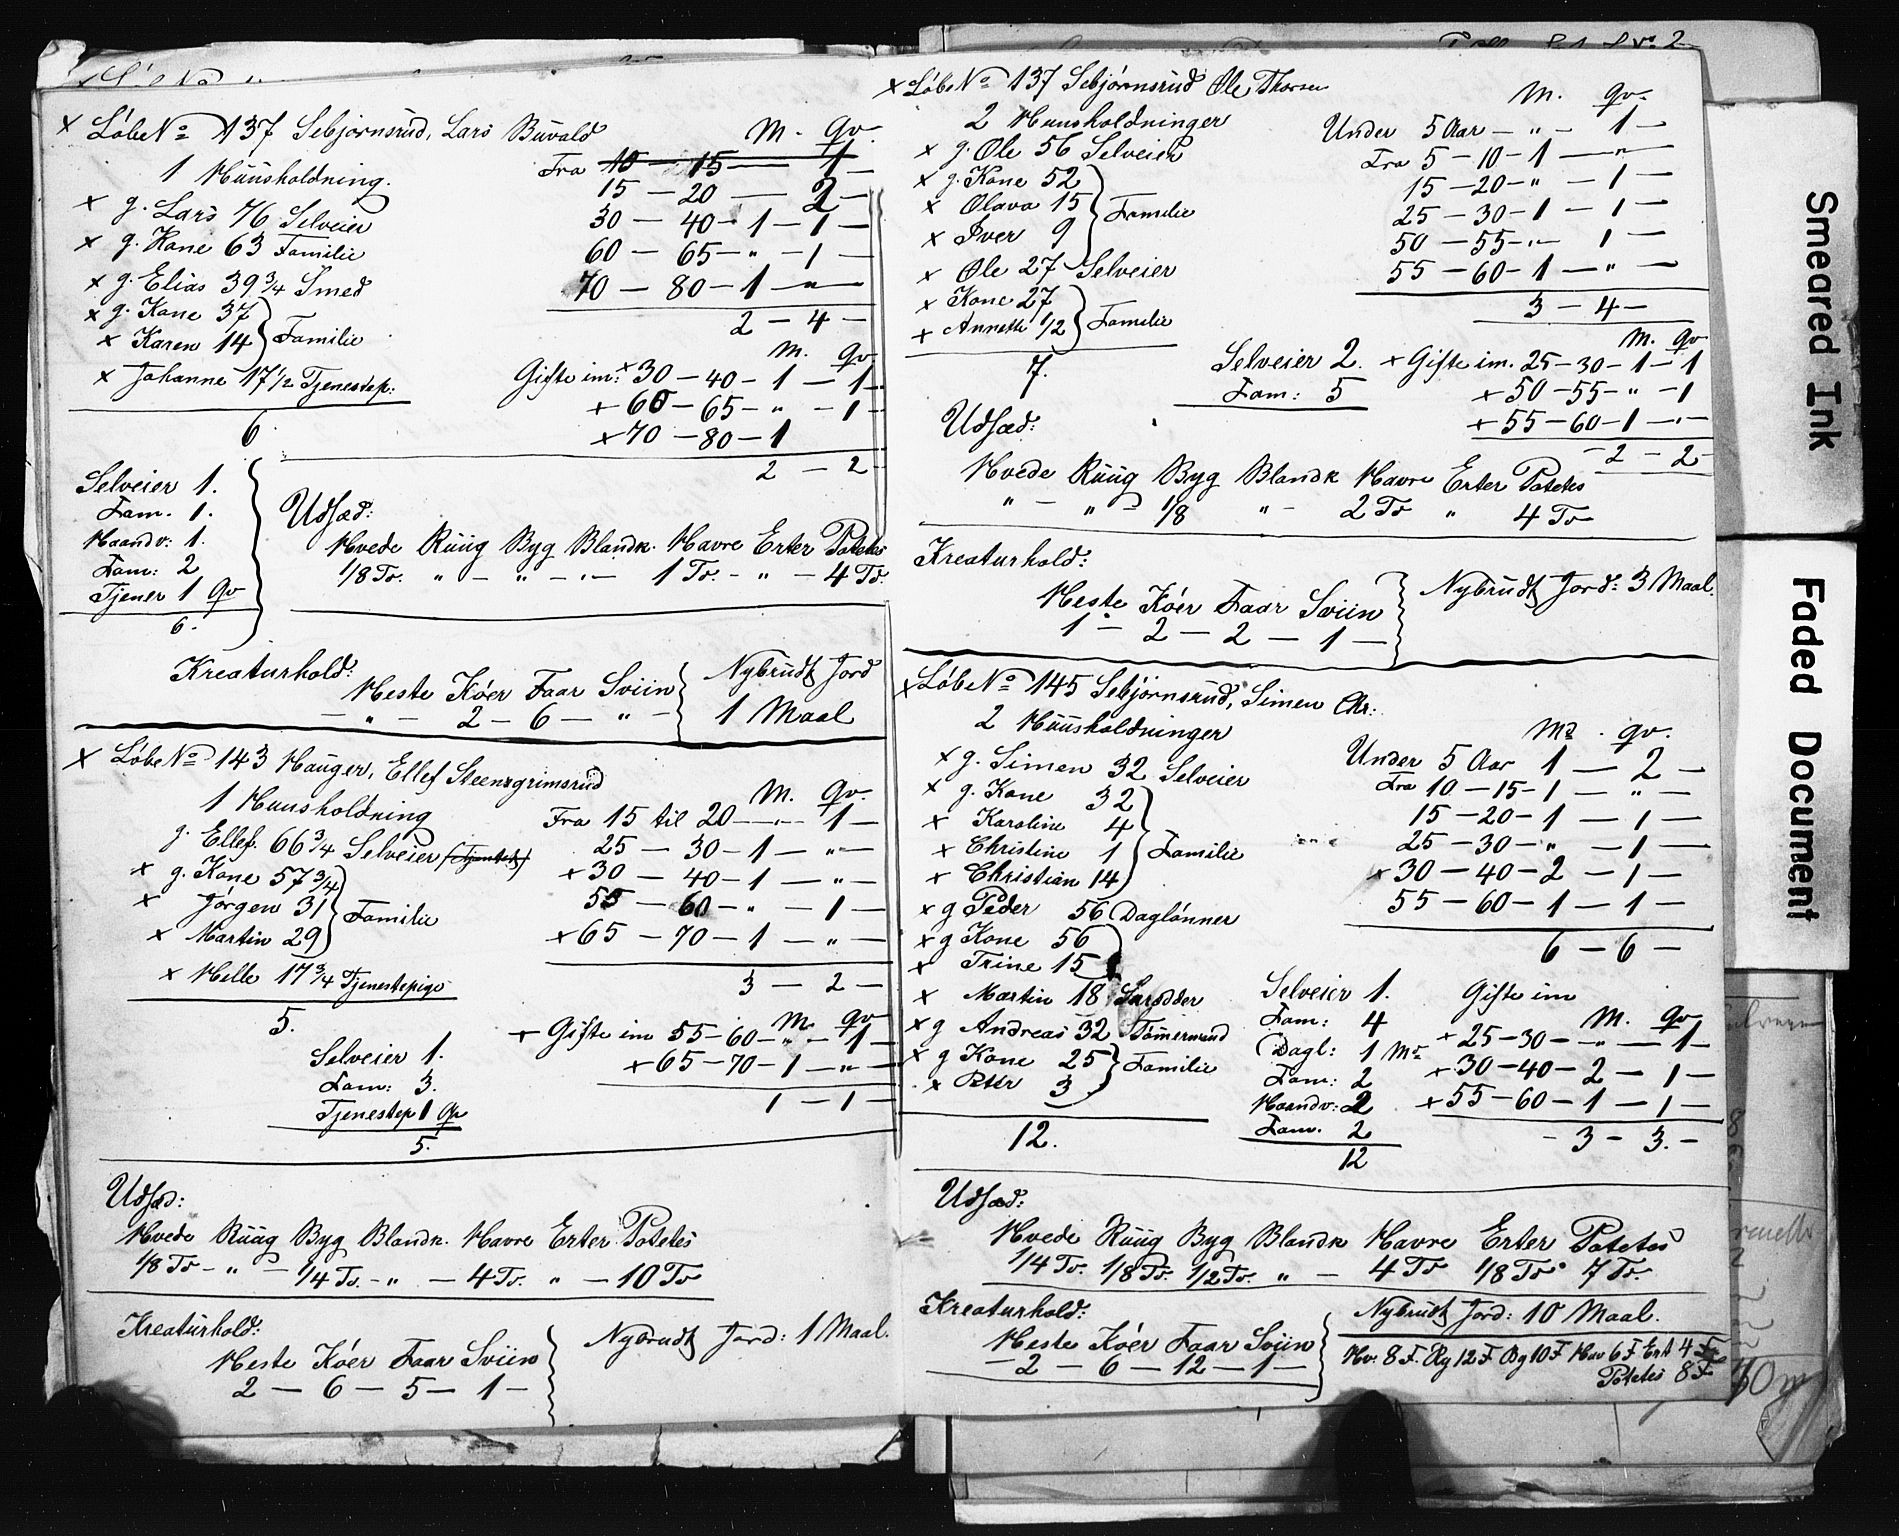 × Løbe No 137 Sebjørnsrud, Lars Buvald
1 Huusholdning.
× g. Lars 76 Selveier
× g. Kone 63 Familie
× g. Elias 39 3/4 Smed
× g. Kone 37
× Karen 14 } Familie
× Johanne 17 1/2 Tjenestep:
6
M. Qv.
Fra 10 — 15 — 1 —
15 — 20 — 2 —
30 — 40 — 1 — 1 —
60 — 65 — " — 1 —
70 — 80 — 1 — " —
2 — 4 —
M. Qv.
Gifte im: × 30 — 40 — 1 — 1 —
× 60 — 65 — " — 1 —
× 70 — 80 — 1
2 — 2
Selveier 1.
Fam. 1.
Haandv: 1.
Fam: 2
Tjener 1 Qv
6.
Udsæd:
Hvede Ruug Byg Blandk. Havre Erter Potetes
1/8 Tr. " — " — " — 1 Tr. — " — 4 Tr.
Kreaturhold:
Heste Køer Faar Sviin
— " — 2 — 6 — " —
Nybrudt Jord
1 Maal
× Løbe No 143 Hauger, Ellef Steensgrimsrud
1 Huusholdning
g. Ellef. 66 3/4 Selveier
× g. Kone 57 3/4
× Jørgen 31 } Familie
× Martin 29
× Helle 17 3/4 Tjenestepige
5.
M. Qv.
Fra 15 til 20 — " — 1 —
25 — 30 — 1 — " —
× 30 — 40 — 1 — " —
55 — 60 — " — 1 —
× 65 — 70 — 1 — " —
3 — 2 —
M. Qv
× Gifte im 55 — 60 — " — 1 —
× 65 — 70 — 1 — " —
1 — 1 —
Selveier 1.
Fam: 3.
Tjenestep 1 Qv
5.
Udsæd:
Hvede Ruug Byg Blandk. Havre Erter Potetes
1/8 Tr — " — 1/4 Tr. — " — 4 Tr. " — 10 Tr
Kreaturhold:
Heste Køer Faar Sviin
2 — 6 — 5 — 1 —
Nybrudt Jord: 1 Maal.
× Løbe No 137 Sebjørnsrud Ole Thorsen
2 Huusholdninger
× g. Ole 56 Selveier
× g. Kone 52
× Olava 15 } Familie
× Iver 9
× Ole 27 Selveier
× Kone 27
× Annette 1/2 } Familie
7.
M. Qv.
Under 5 Aar — " — 1 —
Fra 5 — 10 — 1 — " —
15 — 20 — " — 1 —
25 — 30 — 1 — 1 —
50 — 55 — " — 1 —
55 — 60 — 1 — " —
3 — 4 —
Selveier 2.
Fam: 5
M. Qv
× Gifte im. 25 — 30 — 1 — 1
× 50 — 55 — " — 1
× 55 — 60 — 1 — " —
2 — 2
Udsæd:
Hvede Ruug Byg Blandk Havre Erter Potetes
" — " — 1/8 " — 2 Tr " 4 Tr
Kreaturhold:
Heste Køer Faar Sviin
1 — 2 — 2 — 1 —
Nybrudt Jord: 3 Maal.
× Løbe No 145 Sebjørnsrud, Simen Chr:
2 Huusholdninger
× g. Simen 32 Selveier
× g. Kone 32
× Karoline 4
× Christine 1 } Familie
× Christian 14
× g Peder 56 Daglønner
× g Kone 56
× Trine 15
× Martin 18
× g Andreas 32 Tømermand
× g Kone 25 } Familie
× Petter 3
12.
Md. Qv.
Under 5 Aar 1 — 2 —
Fra 10 — 15 — 1 — " —
15 — 20 — 1 — 1 —
25 — 30 — " — 1 —
× 30 — 40 — 2 — 1 —
55 — 60 — 1 — 1 —
6 — 6 —
Selveier 1.
Fam: 4
Dagl: 1 Md
Fam: 2
Haandv: 2
Fam. 2
12
Gifte im
M. Qv
× 25 — 30 — " — 1 —
× 30 — 40 — 2 — 1 —
× 55 — 60 — 1 — 1 —
— 3 — 3. —
Udsæd:
Hvede Ruug Byg Blandk Havre Erter Potetes
1/4 Tr. 1/8 Tr. 1/2 Tr. " — 4 Tr 1/8 Tr 7 Tr.
Kreaturhold:
Heste Køer Faar Sviin
— 2 — 6 — 12 — 1 —
Nybrudt Jord: 10 Maal.
Hv. 8 F. Rg 12 F Bg 10 F Hav 6 F Ert 4 F
Potetes 8 F
Smeared Ink
Faded Document